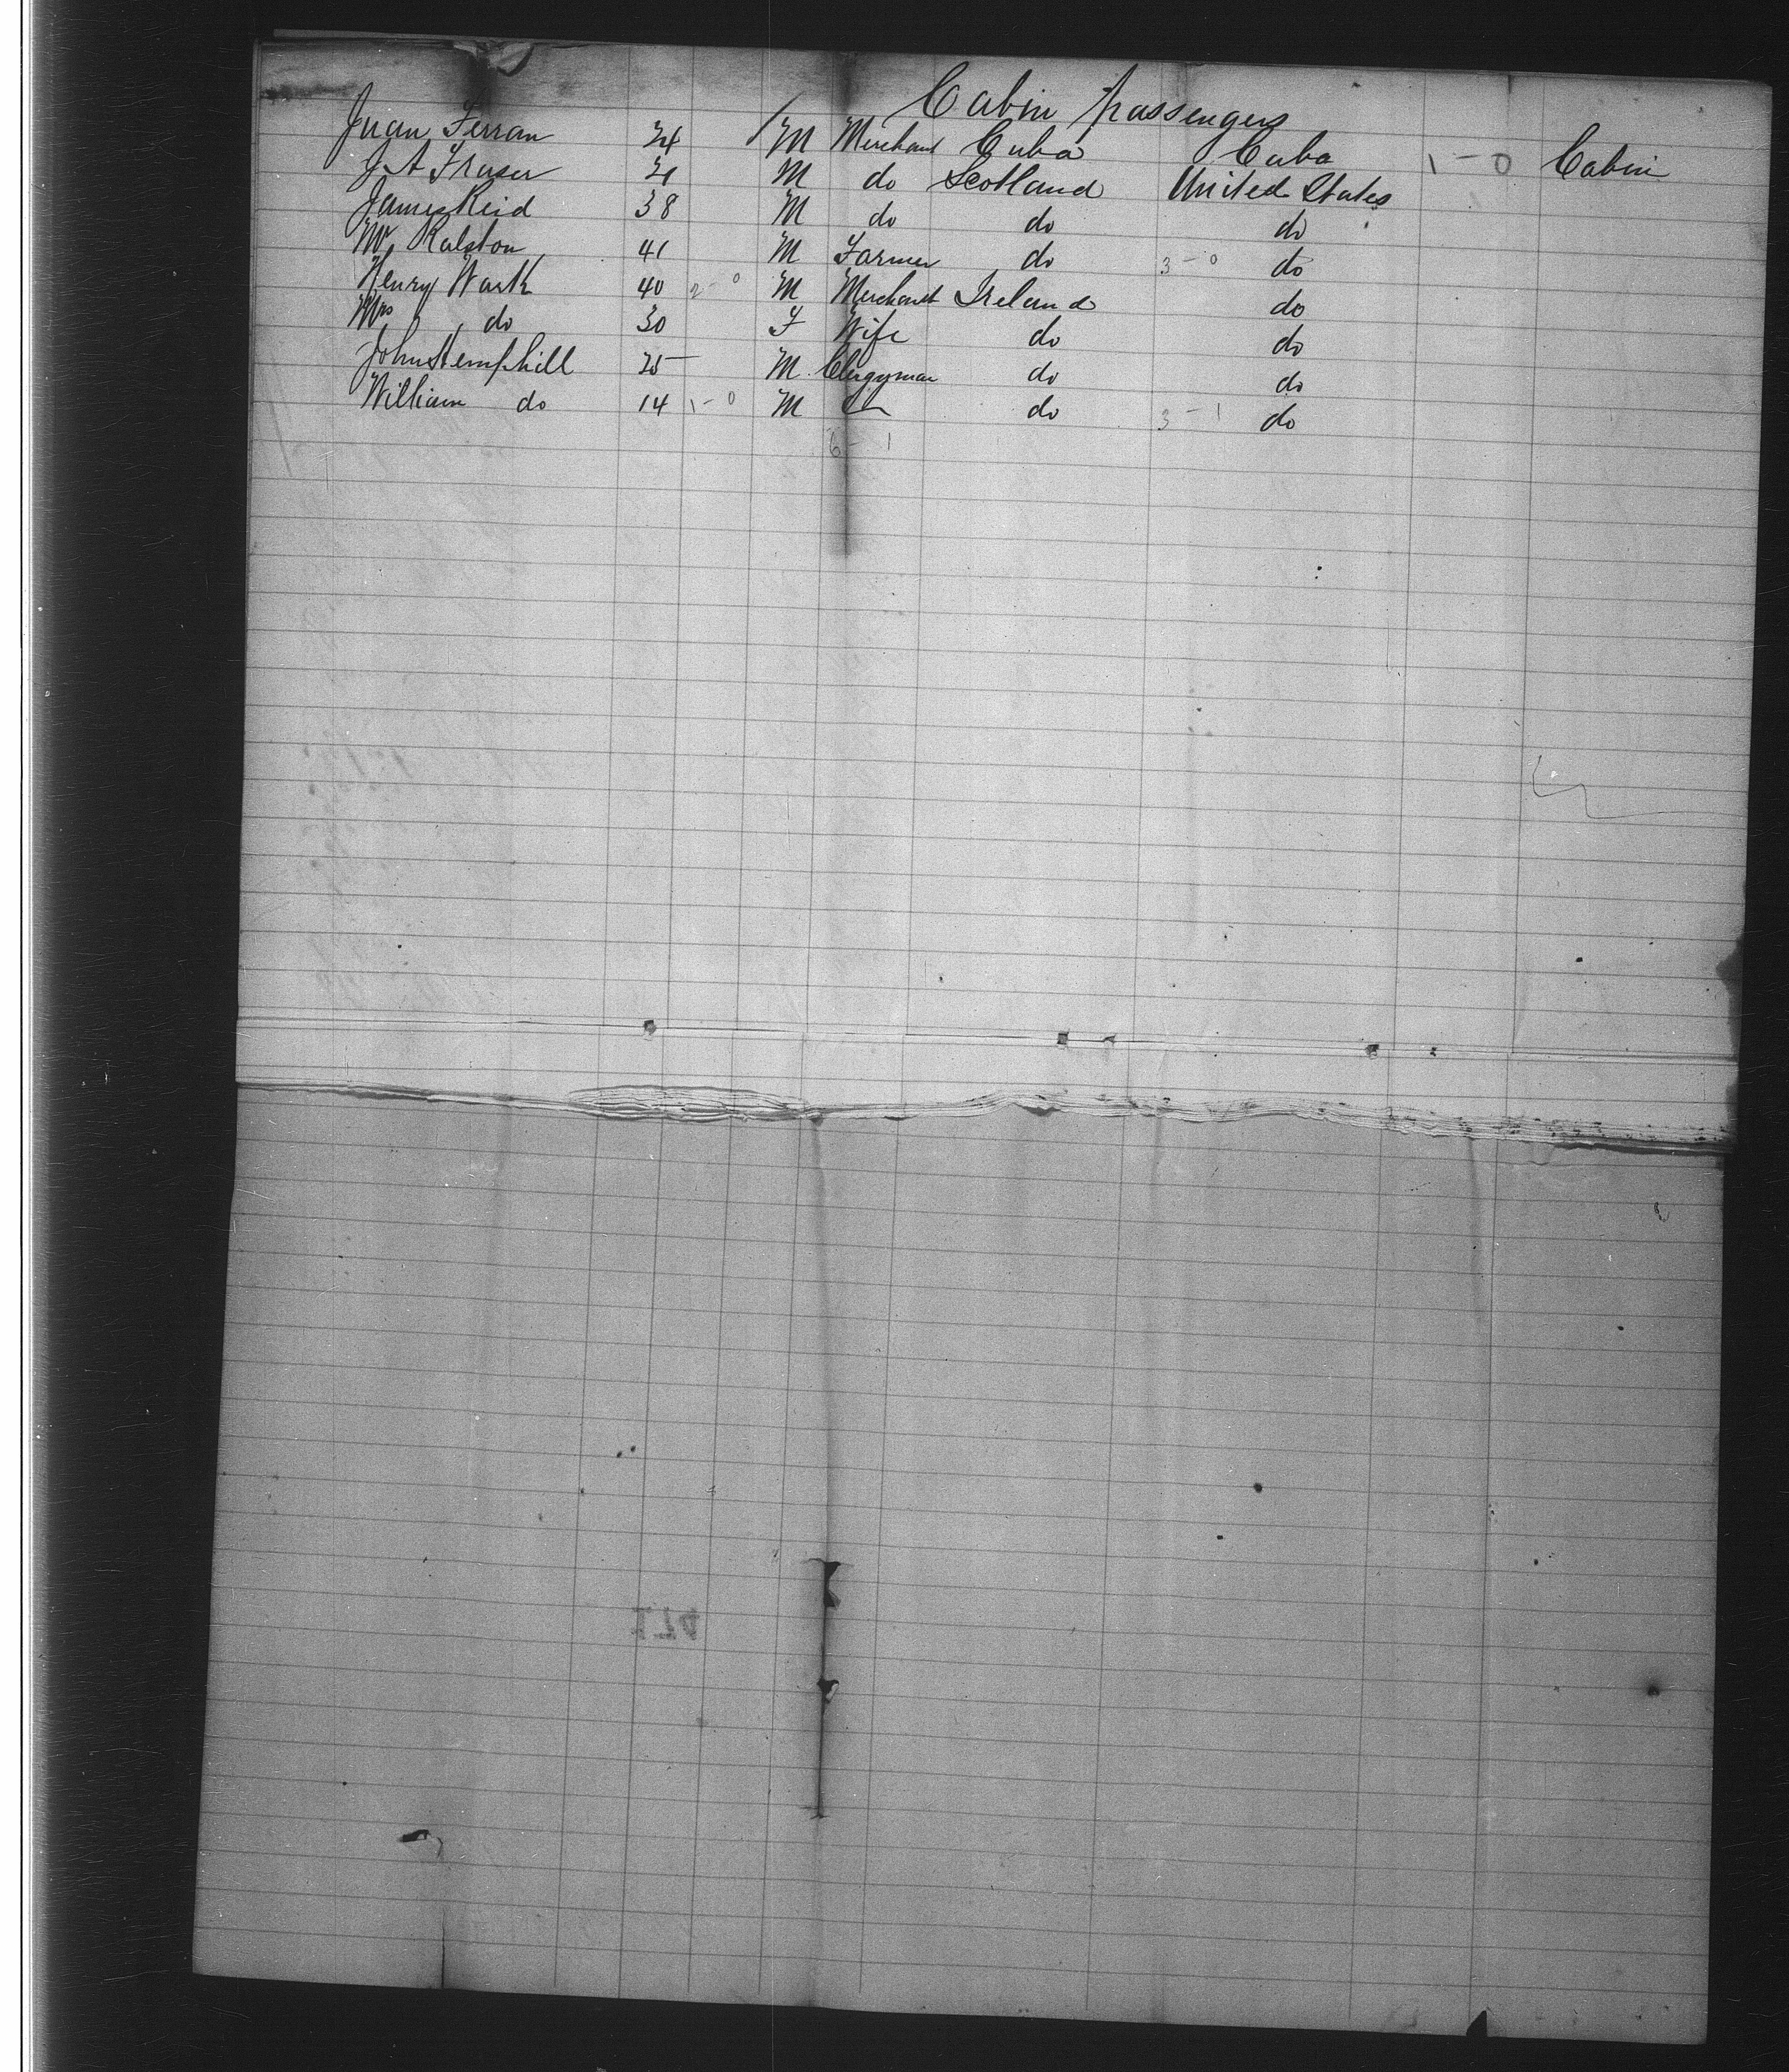 Cabin passengers
Juan Ferran 24 M Merchant Cuba Cuba 1-0 Cabin
J. A Fraser 21 M do Scotland United States
James Reid 38 M do do do
Wm Ralston 41 M Farmer do 3-0 do
Henry Wark 40 2-0 M Merchant Ireland do
Mrs do 30 F Wife do do
John Hemphill 25 M Clergyman do do
William do 14 1-0 M do 3-1 do
6-1
174